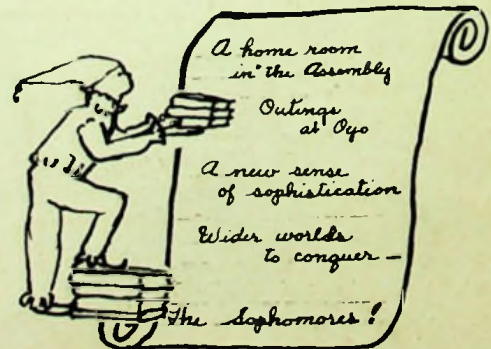 A home room
in the Assembly
Outings
at Oyo
A new sense
of sophistication
Wider worlds
to conquer —
The Sophomores!